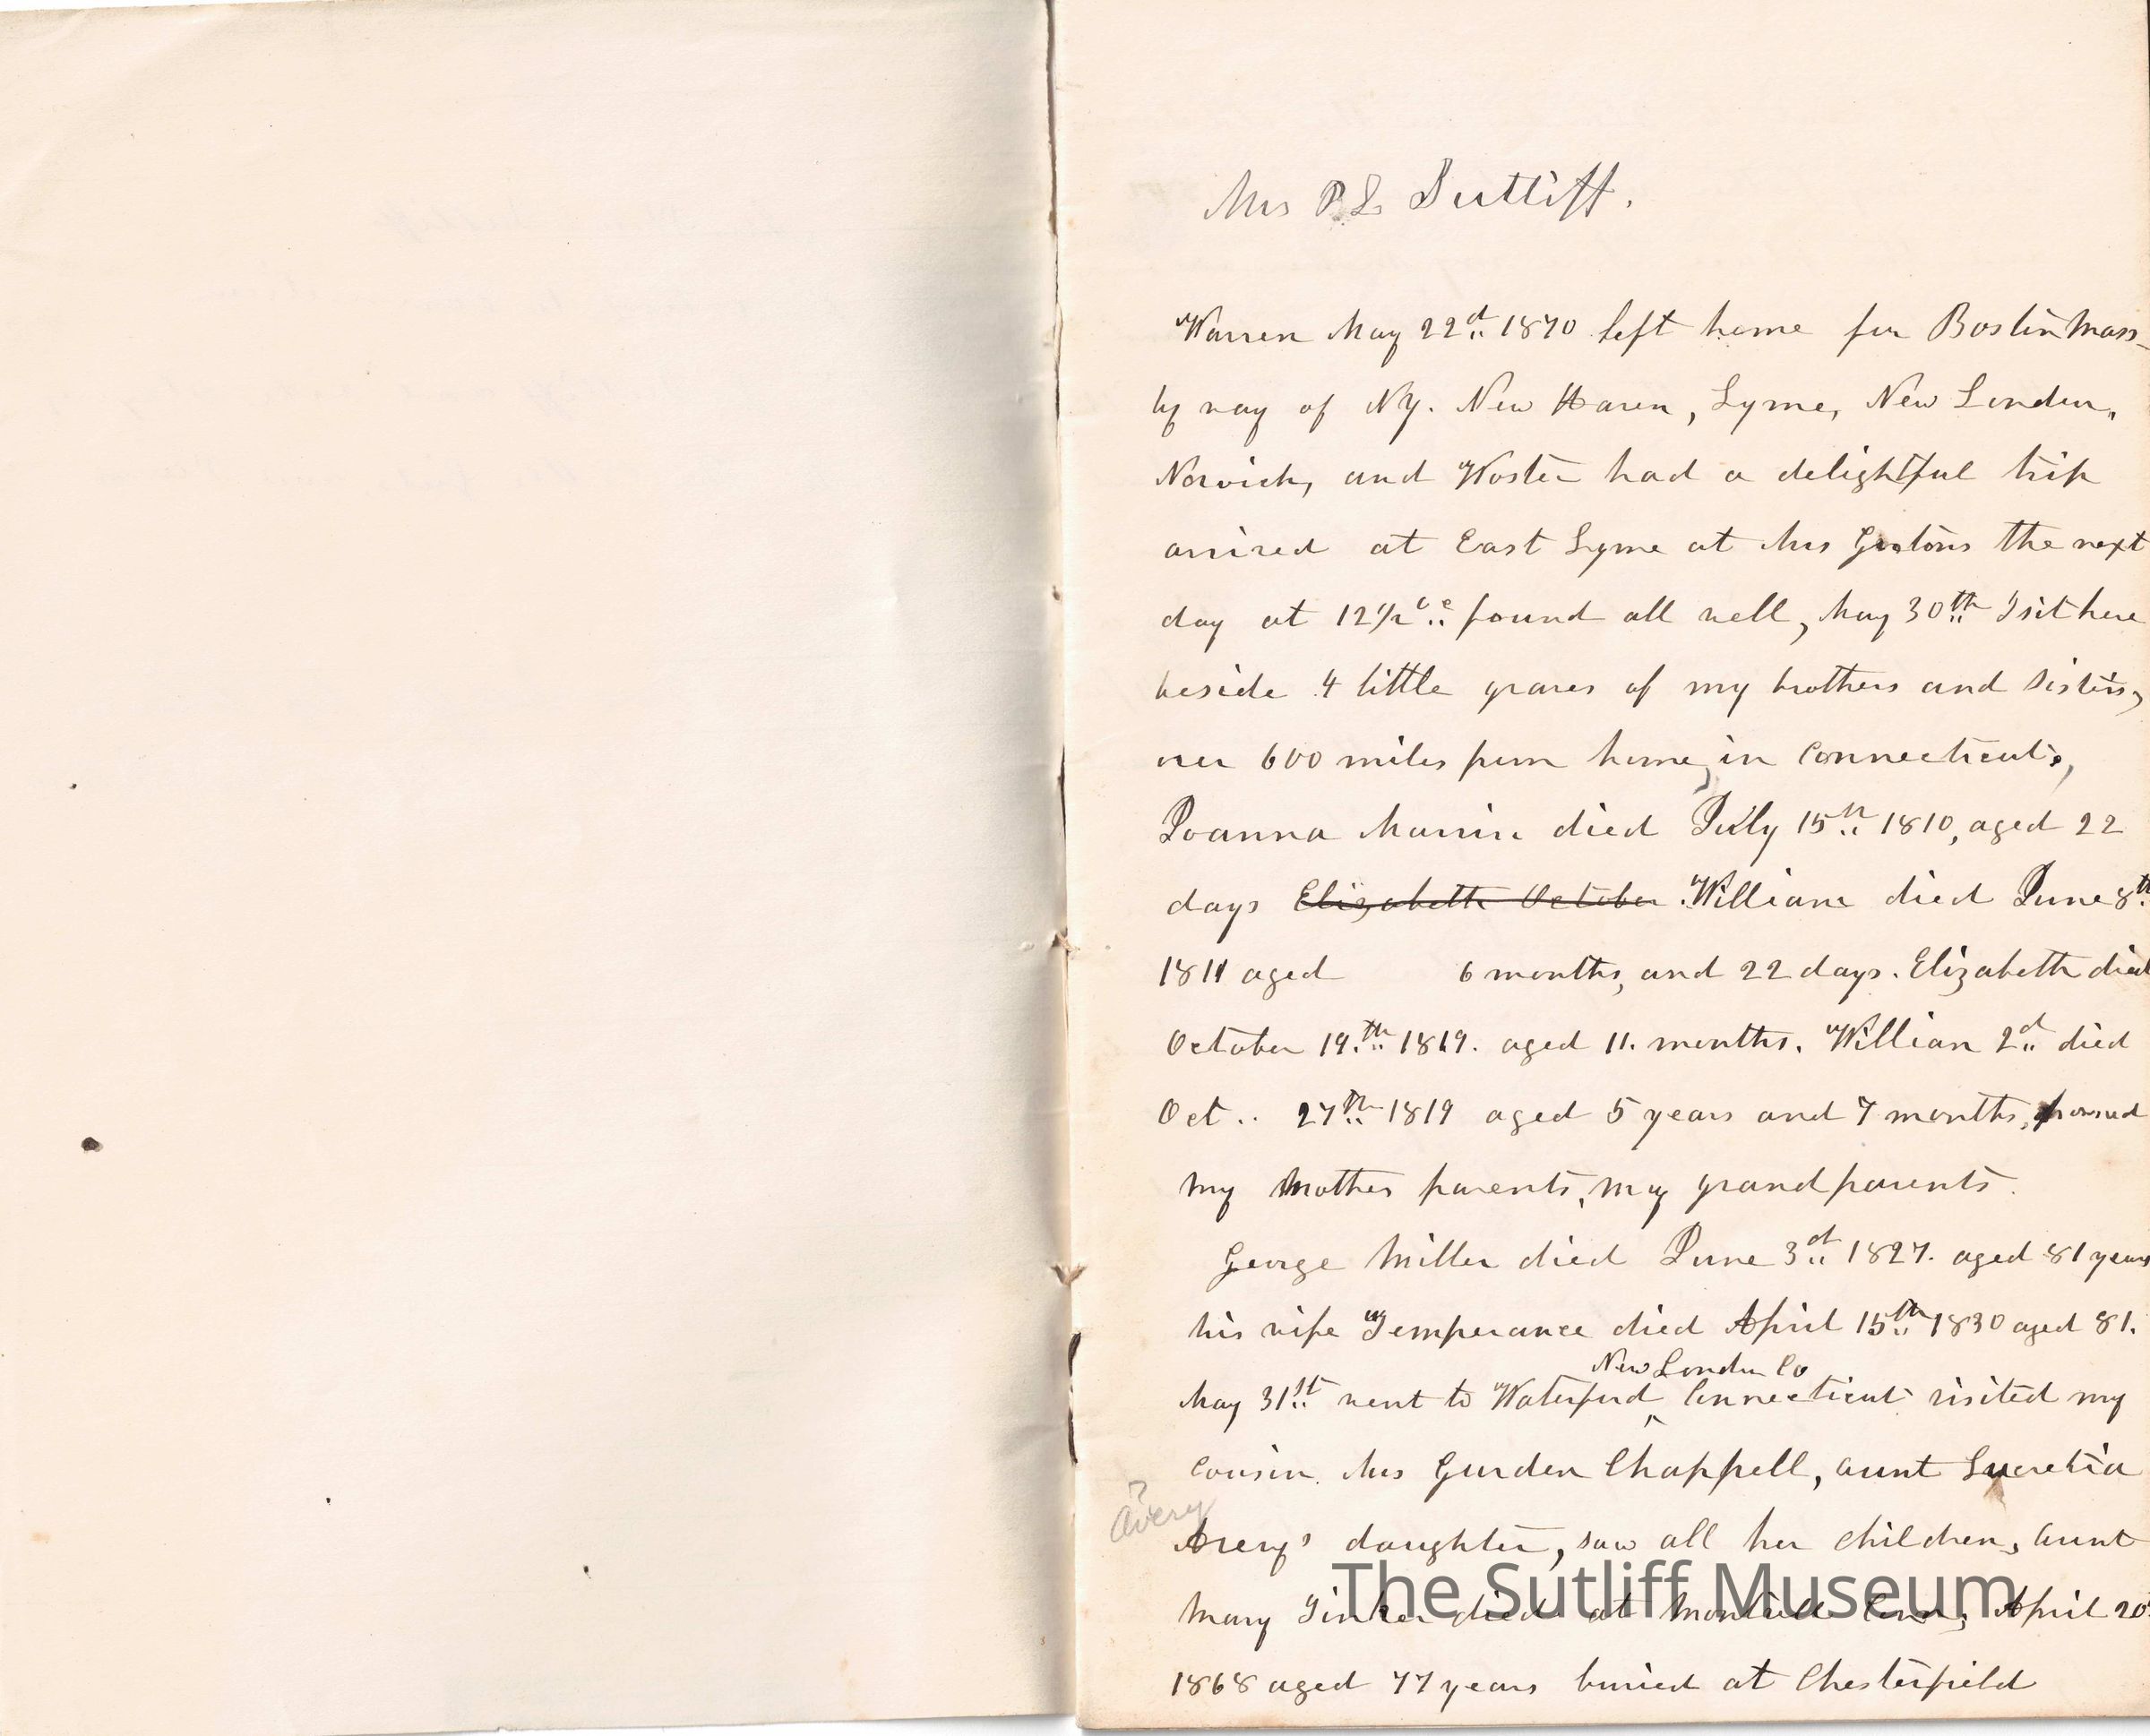 Mrs P L Sutliff.
Warren May 22d 1870 left home for Boston Mass
by way of NY. New Haven, Lyme, New London,
Norwich, and Woster had a delightful trip
arrived at East Lyme at Mrs the next
day at 12 1/2 found all well, May 30th I sit here
beside 4 little graves of my brothers and sisters,
over 600 miles from home, in Connecticut,
Joanna died July 15th 1810, aged 22
days Elizabeth October William died June 8th
1811 aged 6 months, and 22 days. Elizabeth died
October 19th 1819. aged 11. months. William 2d died
Oct. 27th 1819 aged 5 years and 7 months,
my mother parents, my grandparents.
George Miller died June 3d 1827. aged 81 years
his wife Temperance died April 15th 1830 aged 81.
New London Co
May 31st went to Waterford ^ Connecticut visited my
cousin. Mrs Gurden Chappell, aunt Lucretia
? Avery
Avery's daughter, saw all her children, aunt
Mary Tinker died at Conn, April 20
1868 aged 77 years buried at Chesterfield
The Sutliff Museum